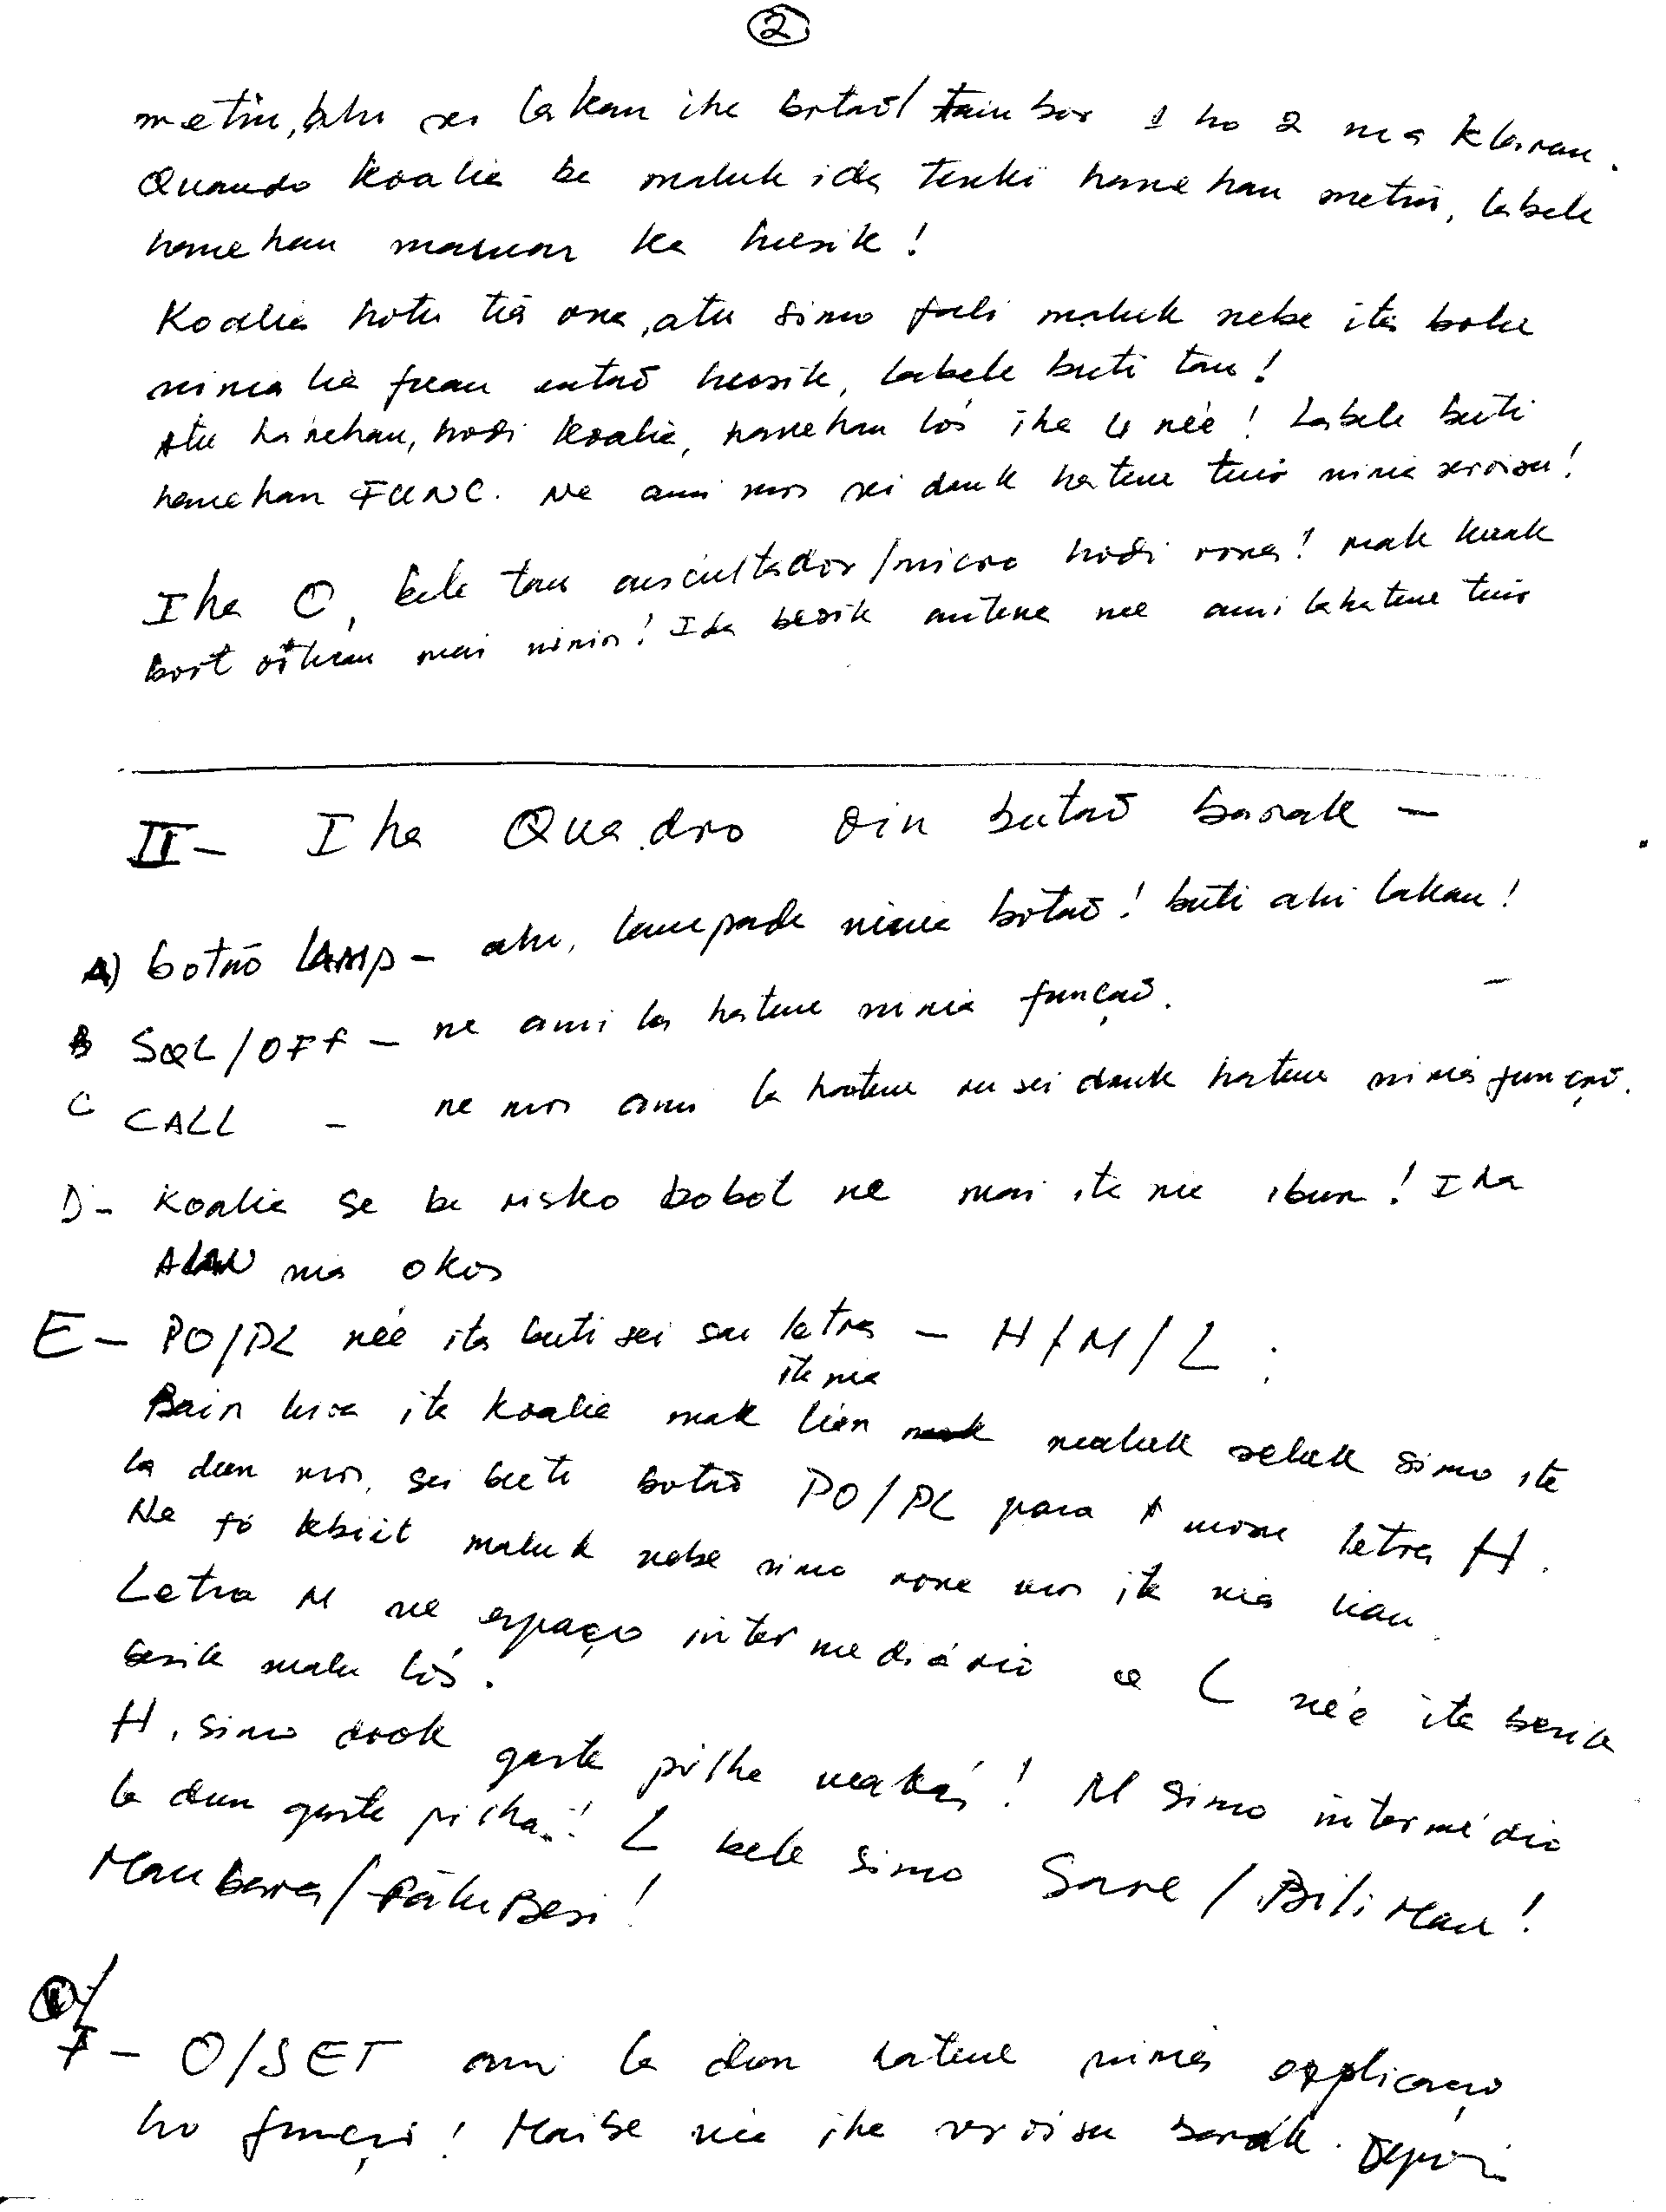 2
metin, ahi sei lakan ihe botaõ/tain bor 1 ho 2 nia klaran.
Quando koalia ba maluk ida tenki hanehan metin, labele
hanehan mamar ka husik!
Koalia hotu tiá ona, atu simo fali maluk nebe ita bolu
ninia lia fuan entaõ husik, labele buti tan!
Atu hanehan, hodi koalia, hanehan lós iha 4 née! Labele buti
hanehan FUNC. Ne ami mos sei dauk hatene tuir ninia servisu!
Iha O, bele tau auscultador/micro hodi rona! mak kuak
bort oituan mai ninin! Ida besik antena nee ami lahatene tuir
II- Iha Quadro oin butaõ barak -
A) botaõ LAMP - ahi, lampada ninia botaõ! buti ahi lakan!
B SQL/OFF - ne ami la hatene ninia funçaõ.
C CALL - ne mos ami la hatene ou sei dauk hatene ninia funçaõ.
D- Koalia se be risko bobot ne mai ita nia ibun! Ida
nia okos
E- PO/PL née ita buti sei sai letra - H/M/L:
Bain hira ita koalia mak lian ita nia maluk seluk simo ita
la dun mos, sei buti botaõ PO/PL para mosu letra H.
Ne fó kbiit maluk nebe simo rona mos ita nia lian.
Letra M ne espaço intermediário e L née ita besik
besik malu lós.
H, simo dook gasta pilha makás! M simo intermédio
la dun gasta pilha..! L bele simo Sare/Bili Mau!
Maubara/Fatu Besi!
F- O/SET ami la dun hatene ninia explicaçaõ
ho funçaõ! Maibe nia iha servisu barák. Depois